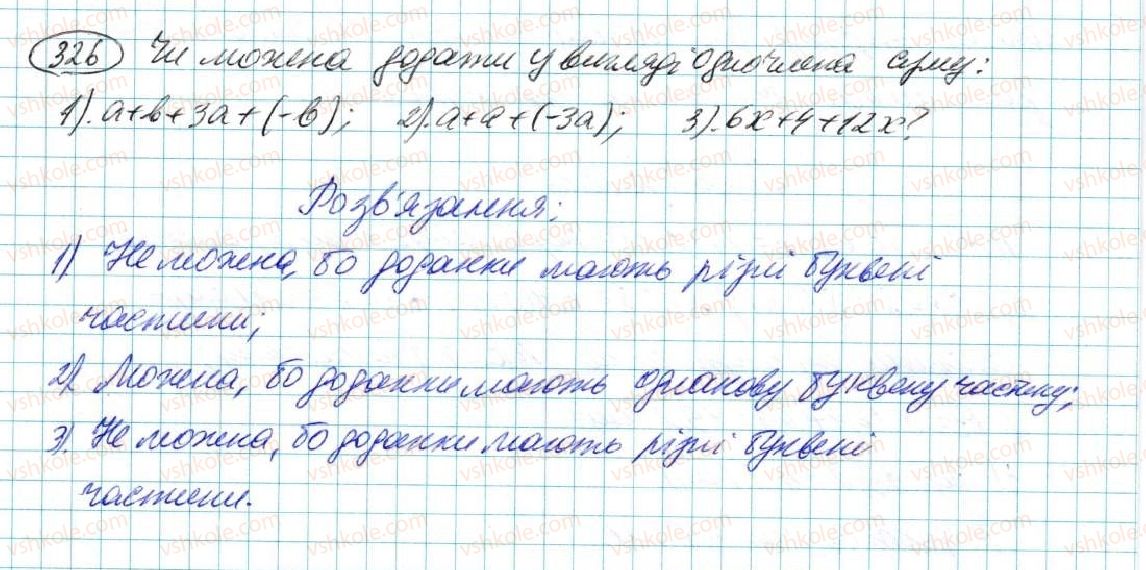 326 Чи можна додати у вигляді одночлена суму:
1). a+b+3a+(-b); 2). a+a+(-3a); 3). 6x+4+12x?
Розв'язання:
1) Не можна, бо доданки мають різні буквені
частини;
2) Можна, бо доданки мають однакову буквену частину;
3). Не можна, бо доданки мають різні буквені
частини.